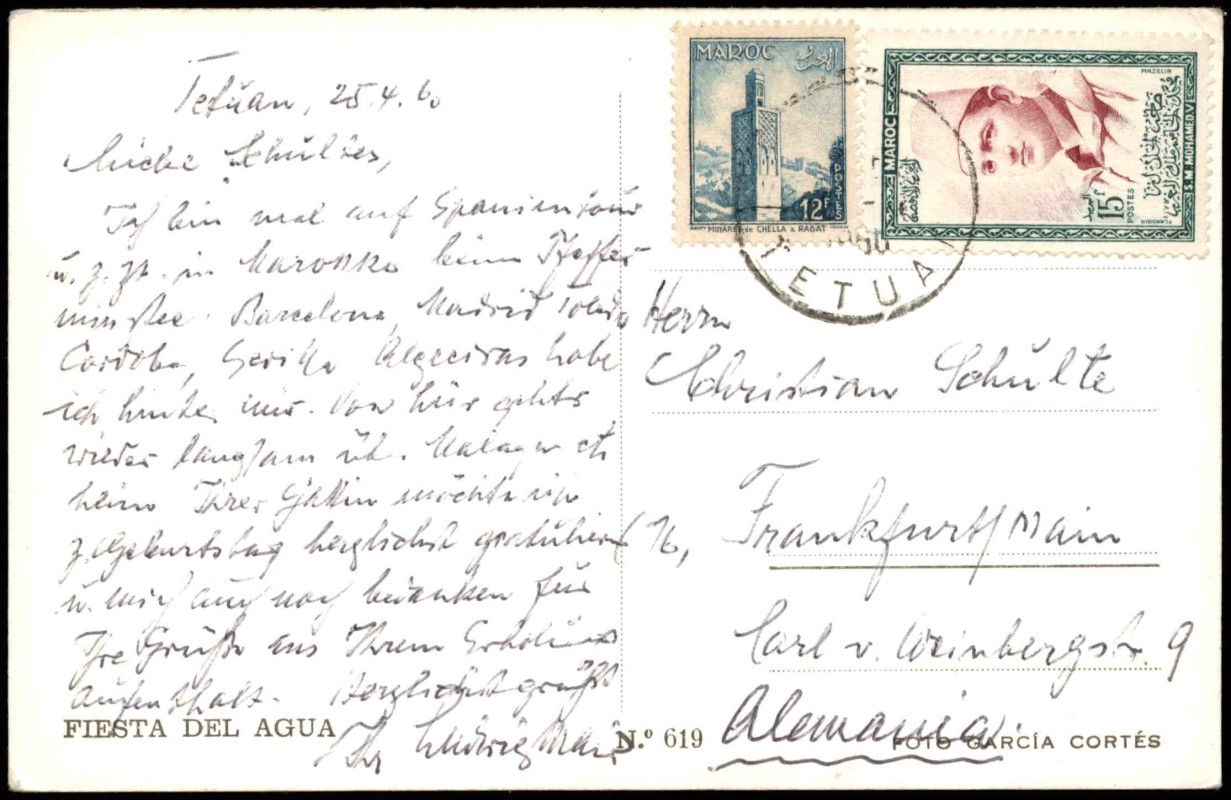 Tetúan, 25.4.60
Liebe Schultes,
Ich bin mal auf Spanientour
u. z. Zt. in Marokko beim Pfeffer
minztee. Barcelona, Madrid Toledo
Cordoba, Sevilla Algeciras habe
ich hinter mir. Von hier gehts
wieder langsam üb. Malaga etc
heim. Ihrer Gattin möchte ich
z. Geburtstag herzlichst gratulieren
u. mich auch noch bedanken für
Ihre Grüße aus Ihrem Erholungs
aufenthalt. Herzlichst grüßt
Ihr Ludwig
FIESTA DEL AGUA
N.º 619
FOTO GARCÍA CORTÉS
Herrn
Christian Schulte
16, Frankfurt/Main
Carl v. Weinbergstr. 9
Alemania
MAROC
المغرب
POSTES
12F
MINARET de CHELLA à RABAT
MAROC
MAZELIN
15F
POSTES
S.M. MOHAMED.V
TETUA